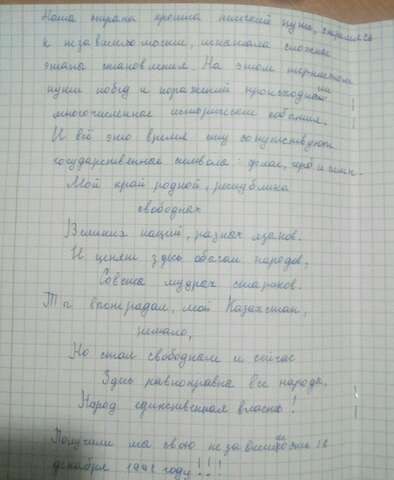 Наша страна прошла нелёгкий путь, стремясь
к независимости, испытала сложные
этапы становления. На этом тернистом
пути побед и поражений происходили
многочисленные исторические события.
И всё это время ему сопутствуют
государственные символы: флаг, герб и гимн.
Мой край родной, республика
свободная
Великих наций, разных языков.
И ценят здесь обычаи народов,
Советы мудрых стариков.
Ты выстрадал, мой Казахстан,
немало,
Но стал свободным и сейчас
Здесь равноправны все народы,
Народ единственная власть!
Получили мы свою независимость 16
декабря 1991 году!!!